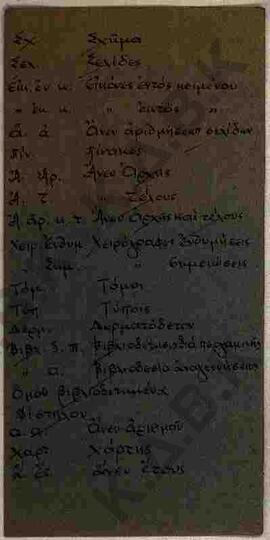 Σχ Σχῆμα
Σελ. Σελίδες
Εἰκ. ἐν κ. Εἰκόνες ἐντός κειμένου
" ἐκ. κ. " ἐκτός "
ἄ. ἀ. Ἄνευ ἀριθμήσεως σελίδων
Πίν. Πίνακες
Ἄ. Ἀρ. Ἄνευ Ἀρχῆς
Ἄ. Τ. " Τέλους
Ἄ. ἀρ. κ. τ. Ἄνευ Ἀρχῆς καί τέλους
Χειρ. Ἐνθυμ. Χειρόγραφοι Ἐνθυμήσεις
" Σημ. " Σημειώσεις
Τόμ. Τόμοι
Τύπ. Τύποις
Δερμ. Δερματόδετον
Βιβλ. Βιβλιοδεσία
" α. Βιβλιοδεσία
Ὁμοῦ βιβλιοδετημένα
ἄ. ἀ. Ἄνευ ἀριθμοῦ
Χαρτ. Χάρτης
ἄ. ἔτ. ἄνευ ἔτους